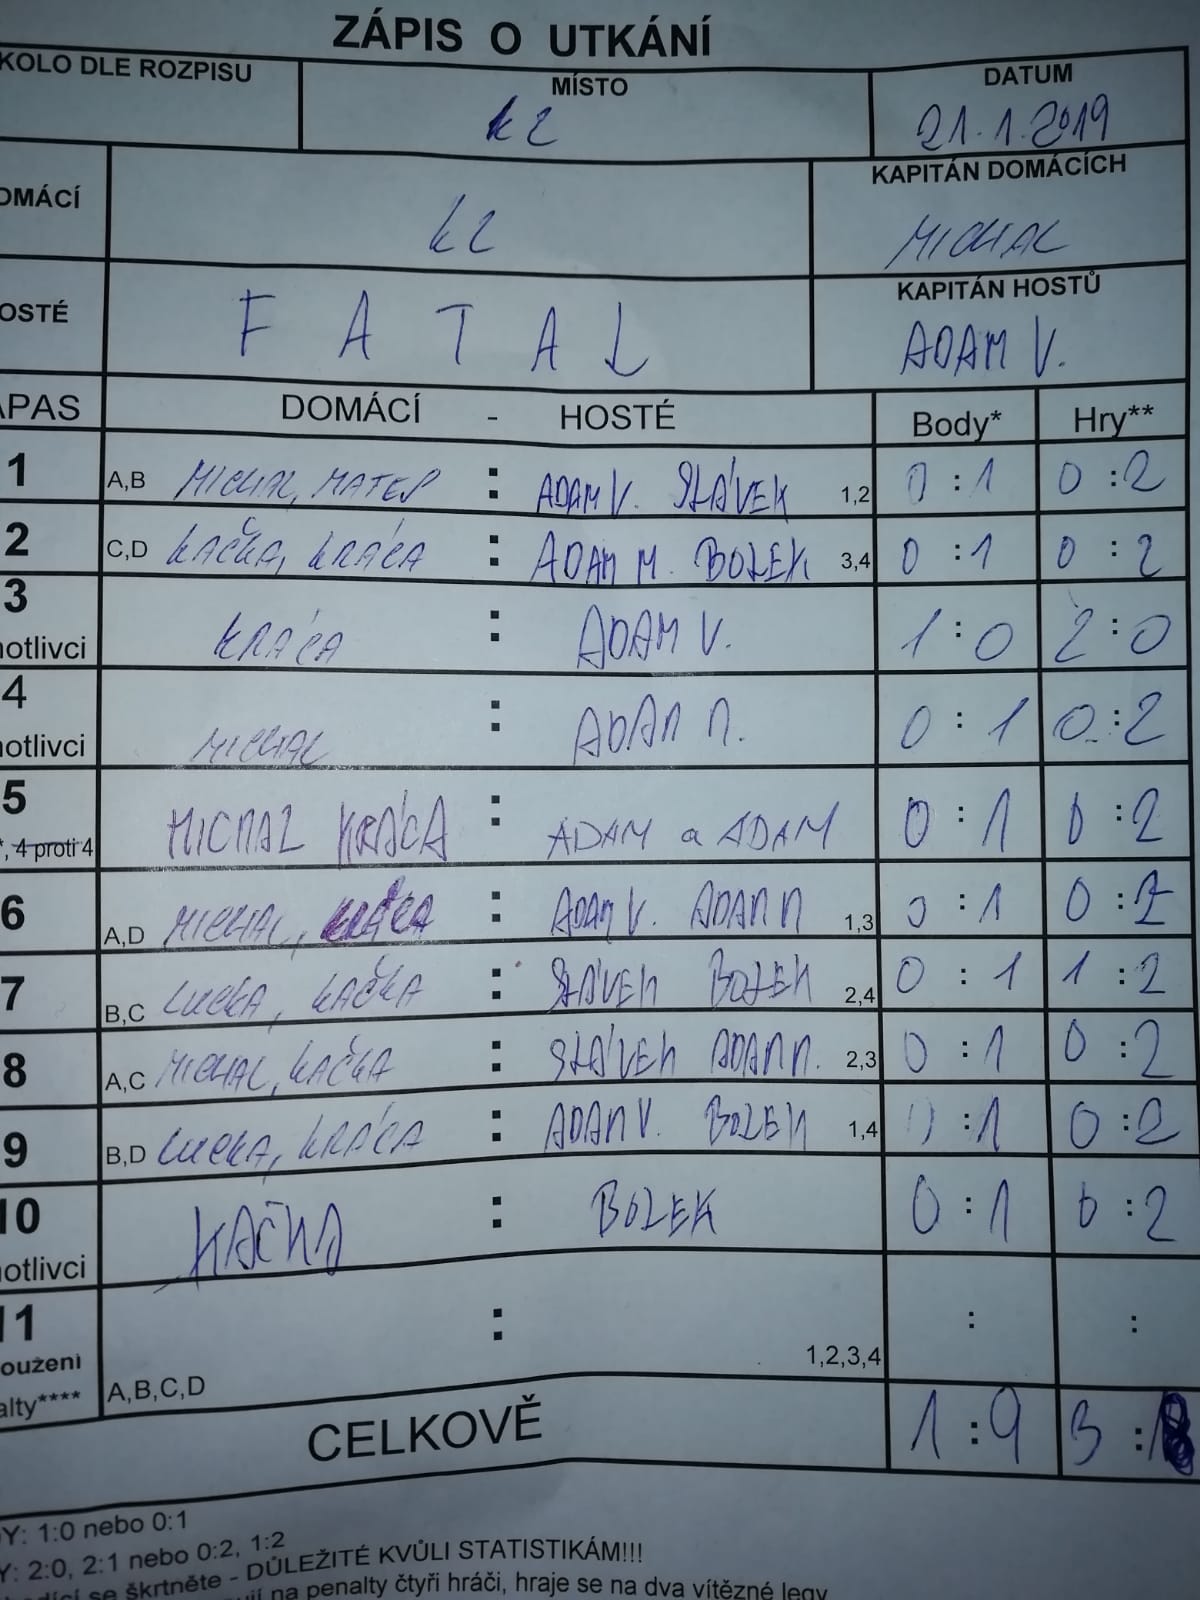 ZÁPIS O UTKÁNÍ
KOLO DLE ROZPISU MÍSTO DATUM
KZ 21.1.2019
OMÁCÍ KZ KAPITÁN DOMÁCÍCH
MICHAL
OSTÉ FATAL KAPITÁN HOSTŮ
ADAM V.
ÁPAS DOMÁCÍ - HOSTÉ Body* Hry**
1 A,B MICHAL, : ADAM V. SLÁVEK 1,2 0:1 0:2
2 C,D KAČKA, KRÁCA : ADAM M. BOLEK 3,4 0:1 0:2
3 KRÁCA : ADAM V. 1:0 2:0
notlivci
4 MICHAL : ADAM M. 0:1 0:2
notlivci
5 MICHAL KRÁCA : ADAM a ADAM 0:1 0:2
*, 4 proti 4
6 A,D MICHAL, KRÁCA : ADAM V. ADAM M 1,3 0:1 0:2
7 B,C LUCKA, KAČKA : SLÁVEK BOLEK 2,4 0:1 1:2
8 A,C MICHAL, KAČKA : SLÁVEK ADAM M. 2,3 0:1 0:2
9 B,D LUCKA, KRÁCA : ADAM V. BOLEK 1,4 0:1 0:2
10 KAČKA : BOLEK 0:1 0:2
notlivci
11 : : :
loužení 1,2,3,4
alty**** A,B,C,D
CELKOVĚ 1:9 3:18
DY: 1:0 nebo 0:1
Y: 2:0, 2:1 nebo 0:2, 1:2
se škrtněte - DŮLEŽITÉ KVŮLI STATISTIKÁM!!!
na penalty čtyři hráči, hraje se na dva vítězné legy